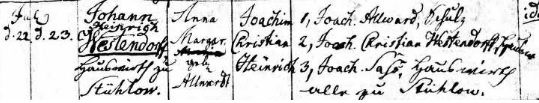 July
d. 22 d. 23.
Johann
Heinrich
Westendorf
Hauswirth zu
Stühlow.
Anna
Margar.
geb.
Allwardt
Joachim
Christian
Heinrich
1, Joach. Allward, Schulz
2, Joach. Christian Westendorff,
3, Joach. Saß, Hauswirth
alle zu Stühlow.